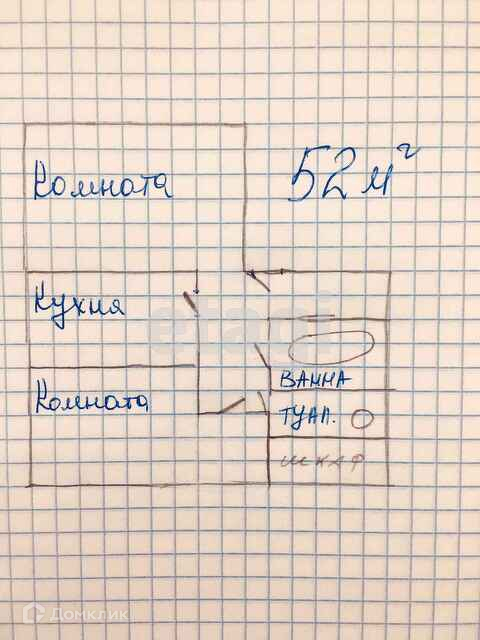 Комната
52 м²
Кухня
etagi
Комната
ВАННА
ТУАЛ.
ШКАФ
Домклик